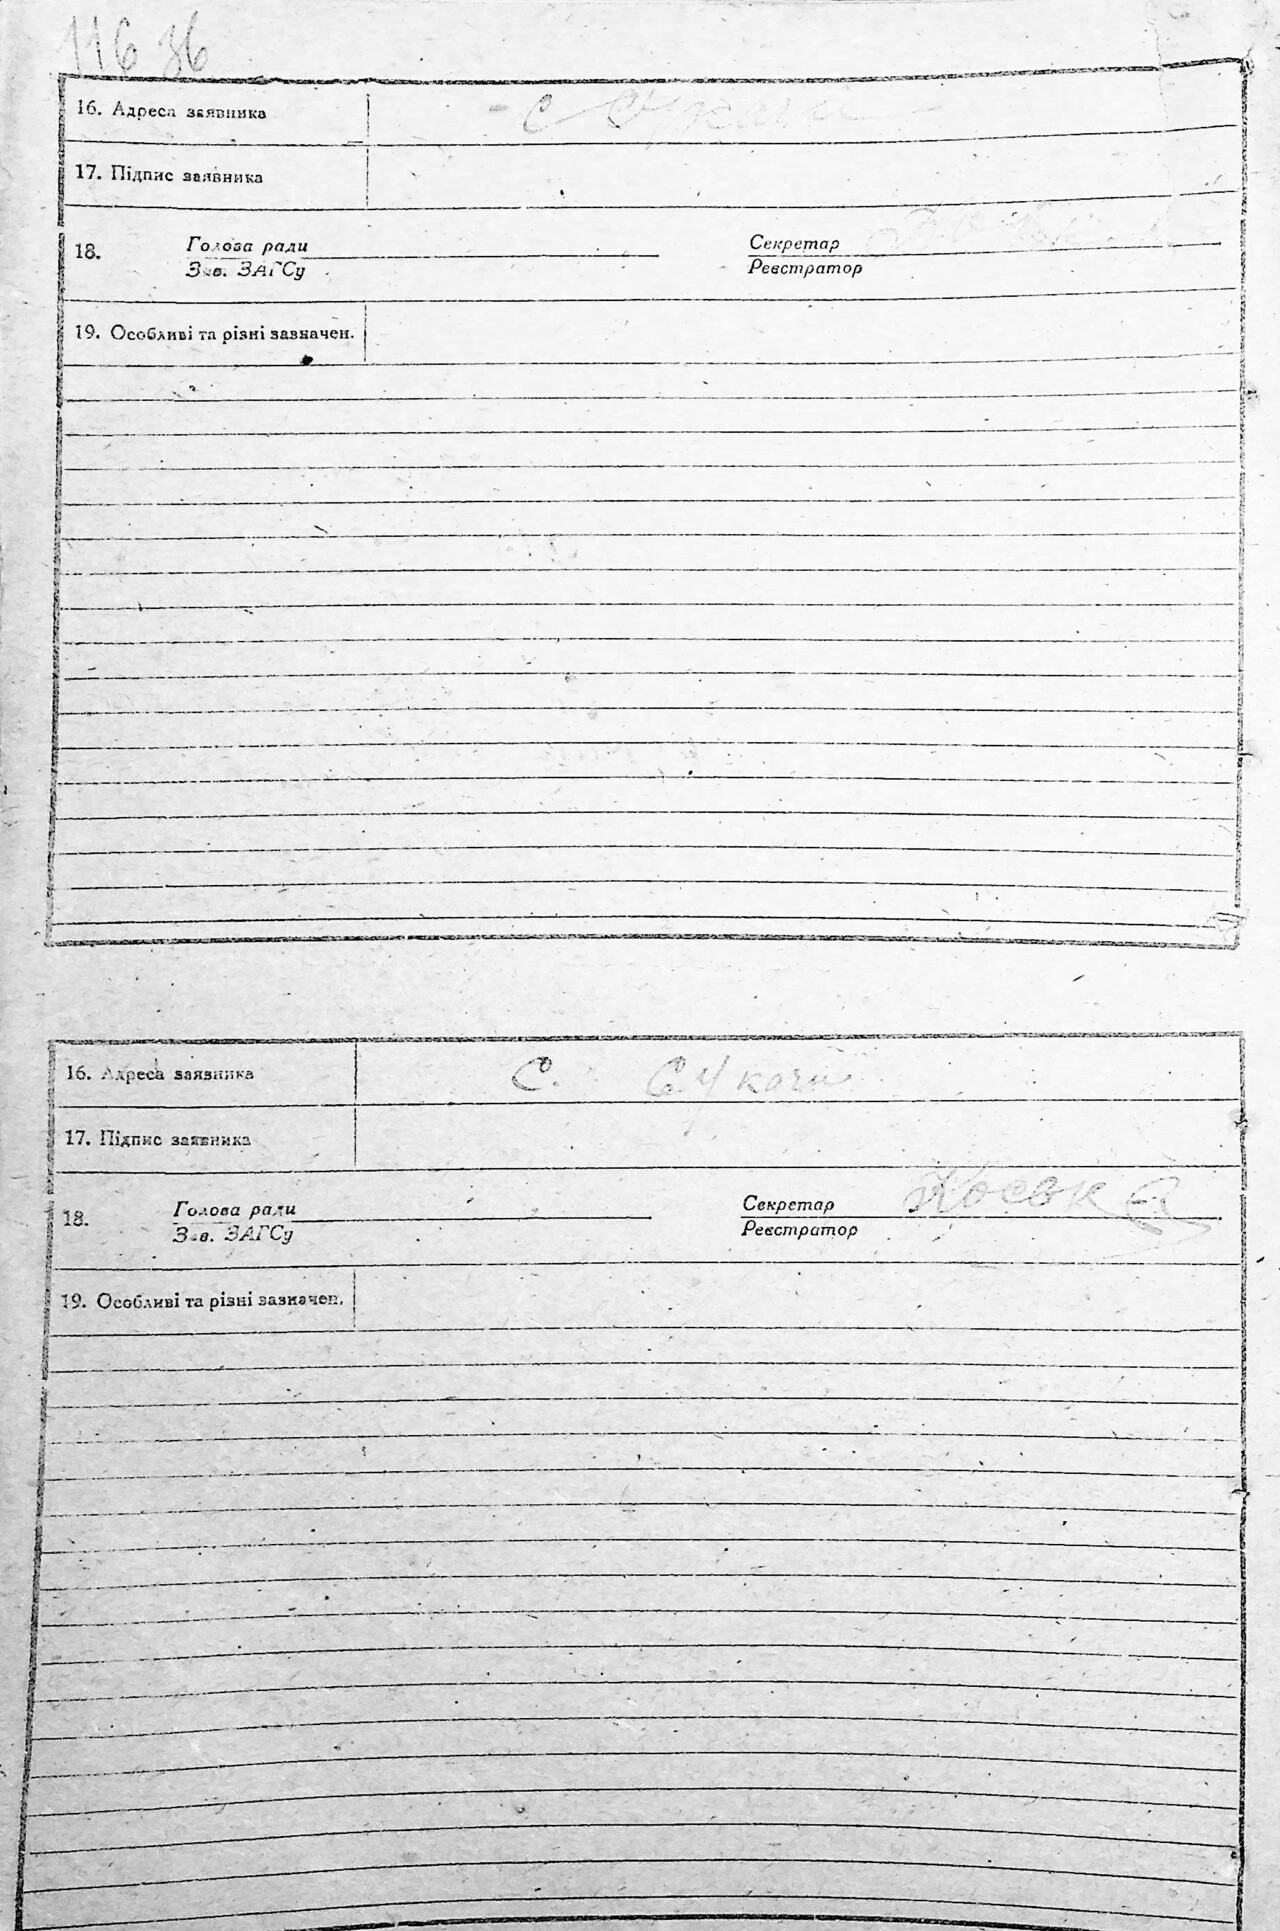 116 зб
16. Адреса заявника с Сукачі
17. Підпис заявника
18. Голова ради Секретар
Зав. ЗАГСу Реєстратор
19. Особливі та різні зазначен.
16. Адреса заявника С. Сукачи
17. Підпис заявника
18. Голова ради Секретар
Зав. ЗАГСу Реєстратор
19. Особливі та різні зазначен.